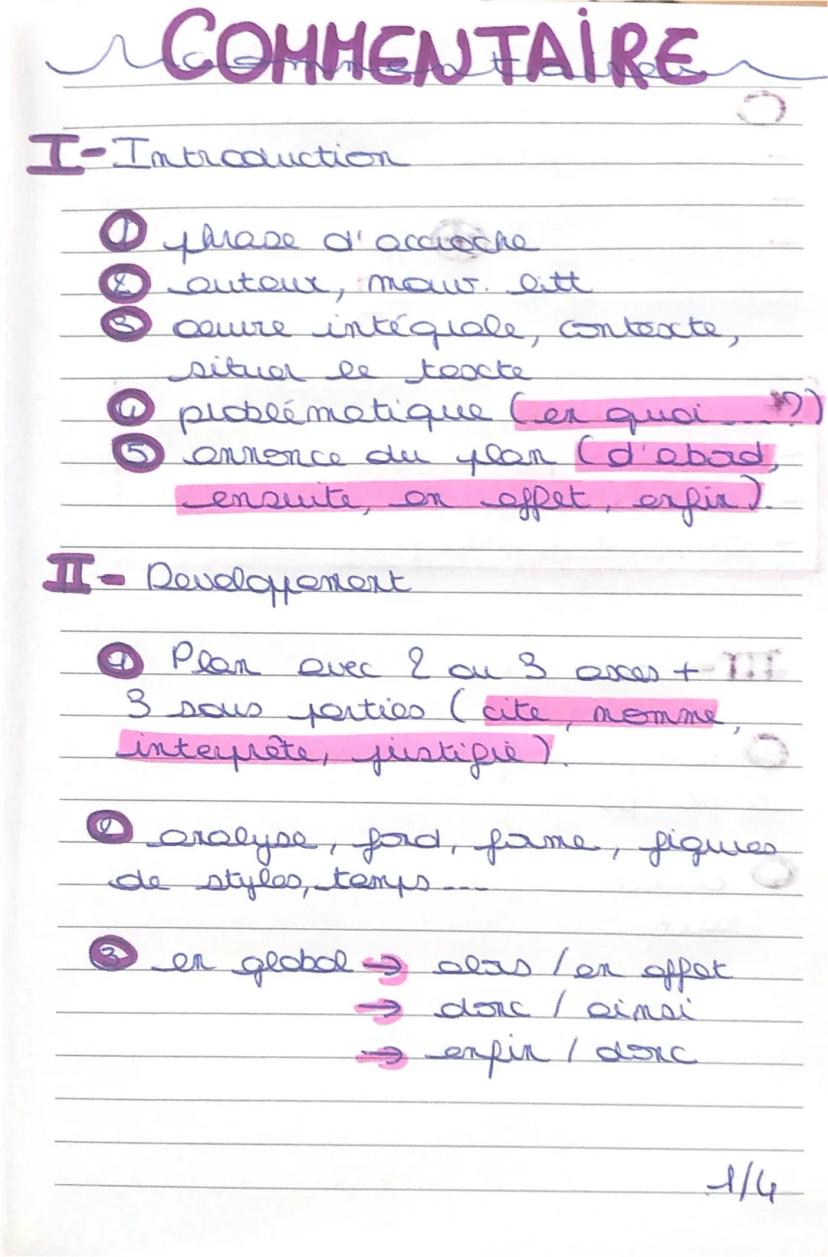 COMMENTAIRE
I- Introduction
① phrase d'accroche
② auteur, mouv. litt
③ oeuvre intégrale, contexte,
situer le texte
④ problématique (en quoi ... ?)
⑤ annonce du plan (d'abord,
ensuite, en effet, enfin).
II- Developpement
① Plan avec 2 ou 3 axes +
3 sous parties (cite, nomme,
interprète, justifie).
② analyse, fond, forme, figures
de styles, temps ...
③ en global → alors / en effet
→ donc / ainsi
→ enfin / donc
1/4